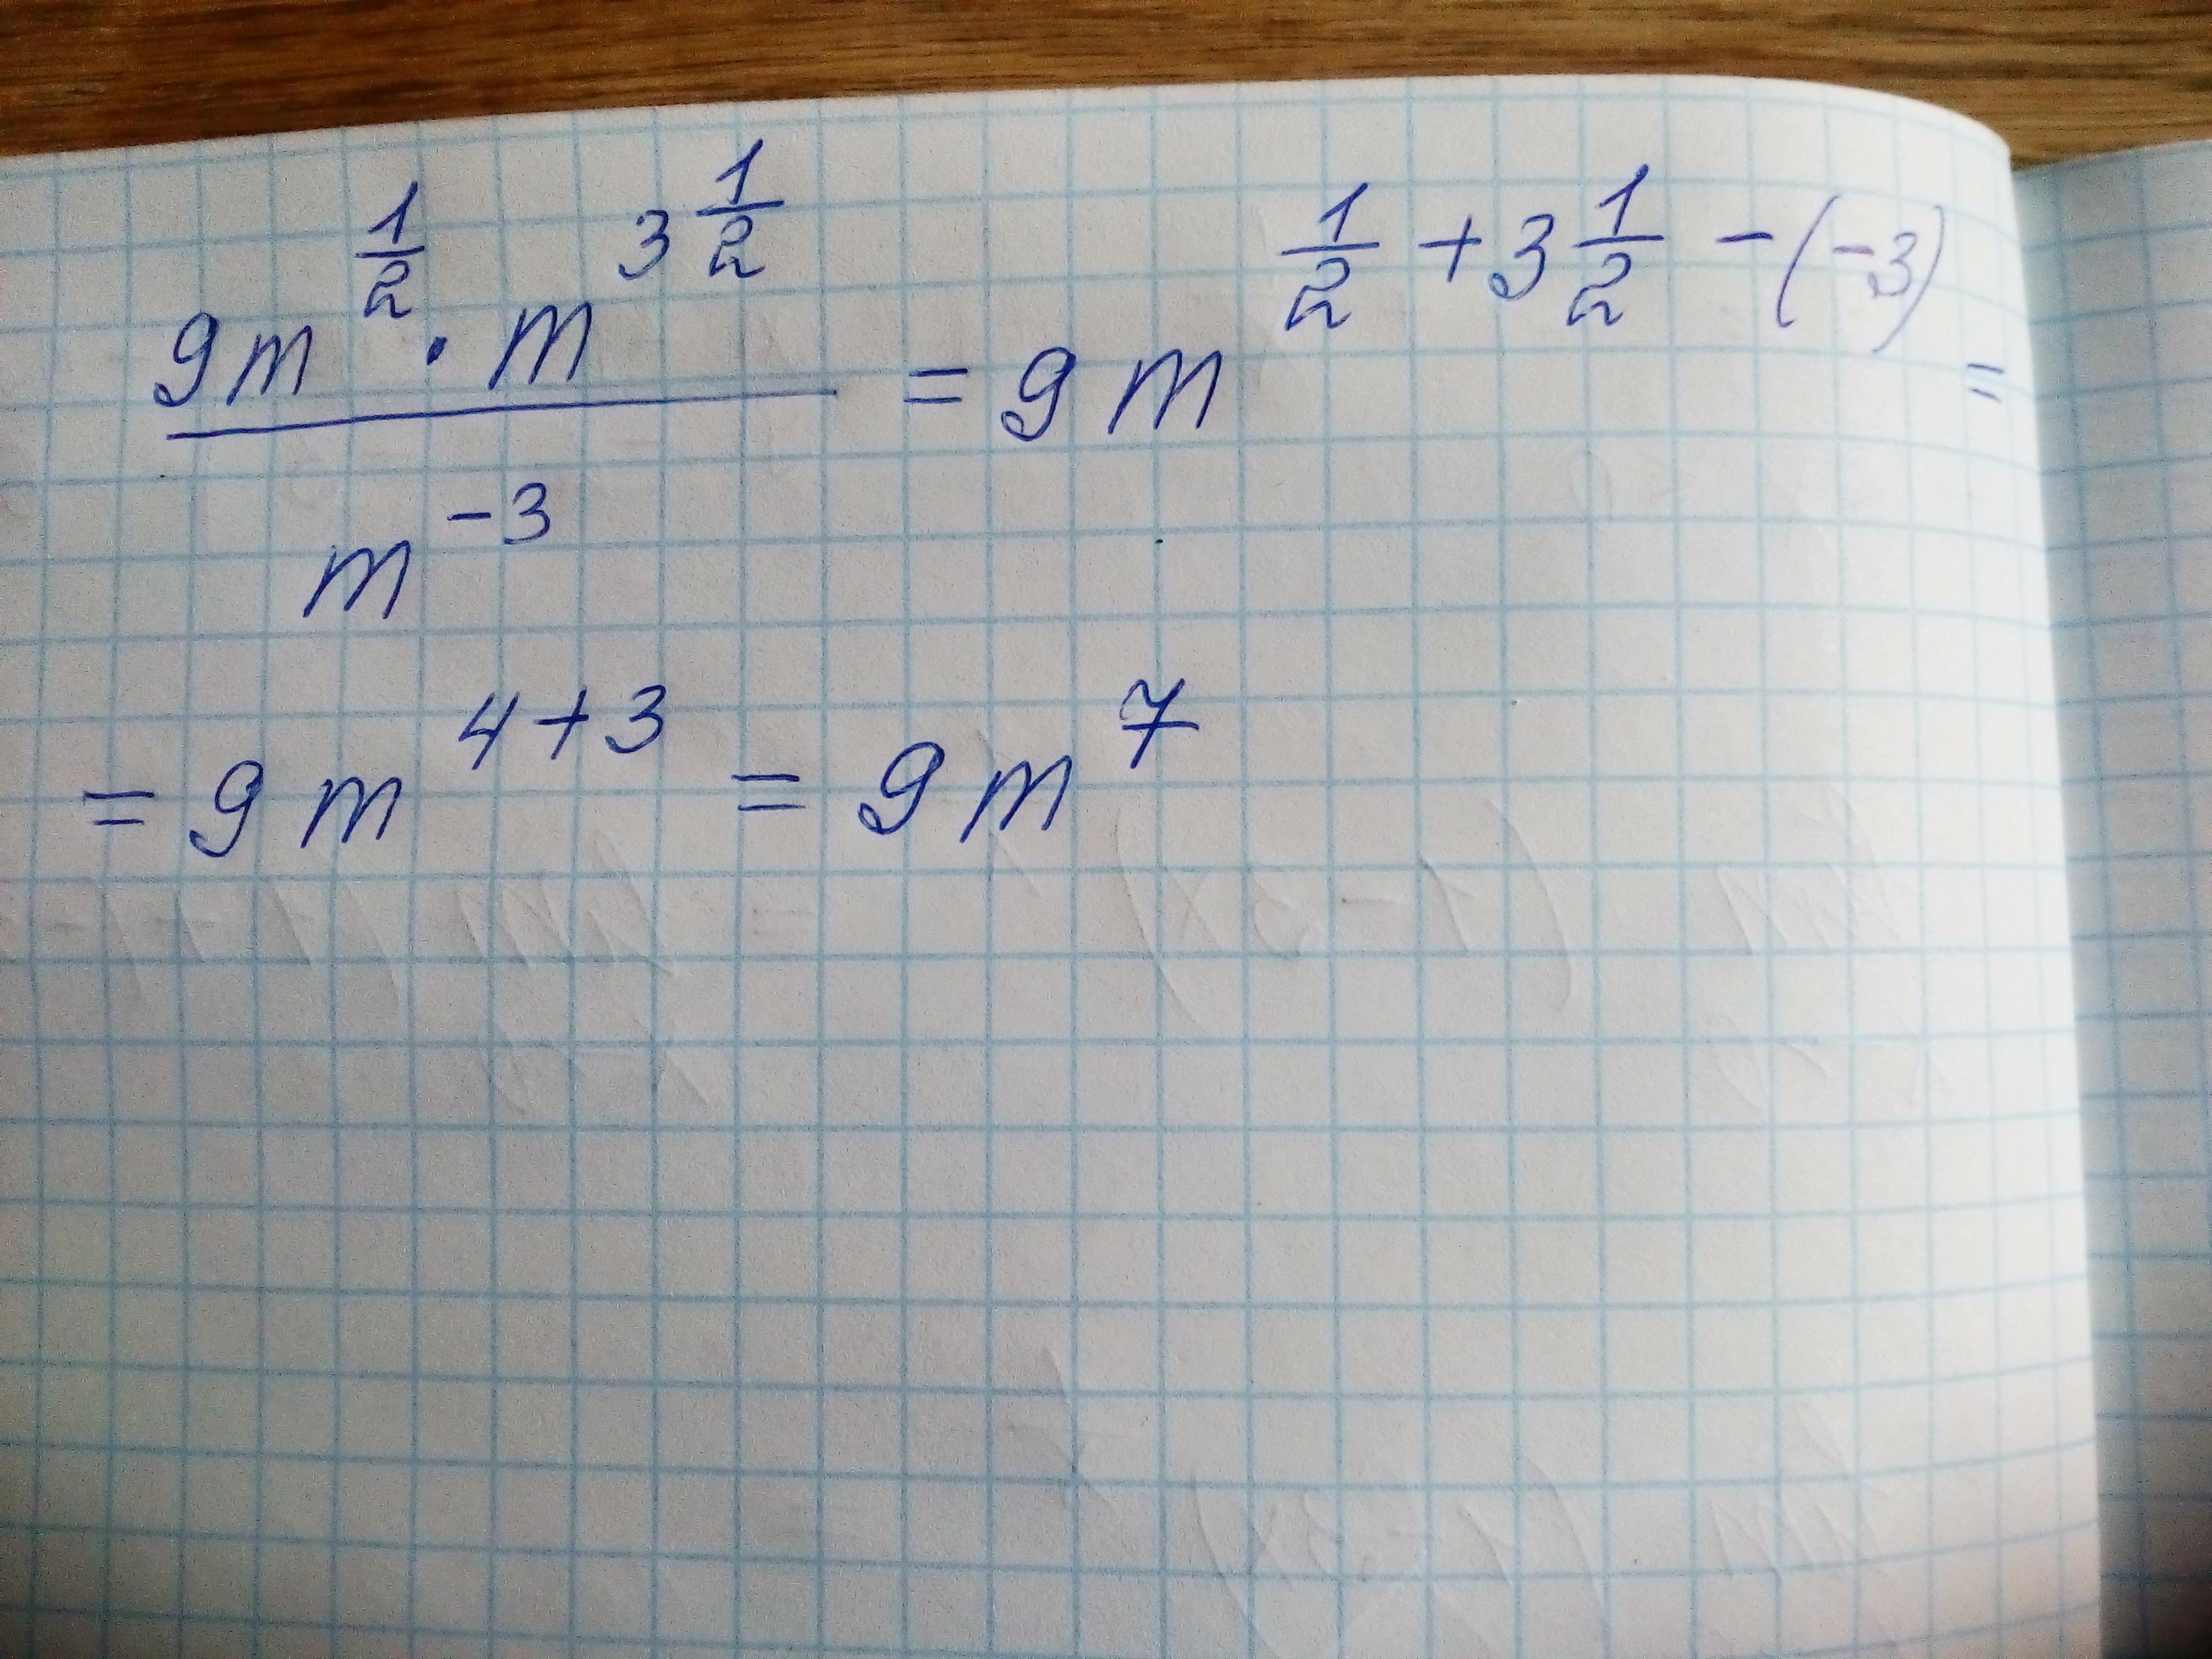 9m^{\frac{1}{2}} · m^{3\frac{1}{2}} / m^{-3} = 9m^{\frac{1}{2}+3\frac{1}{2}-(-3)} =
= 9m^{4+3} = 9m^{7}